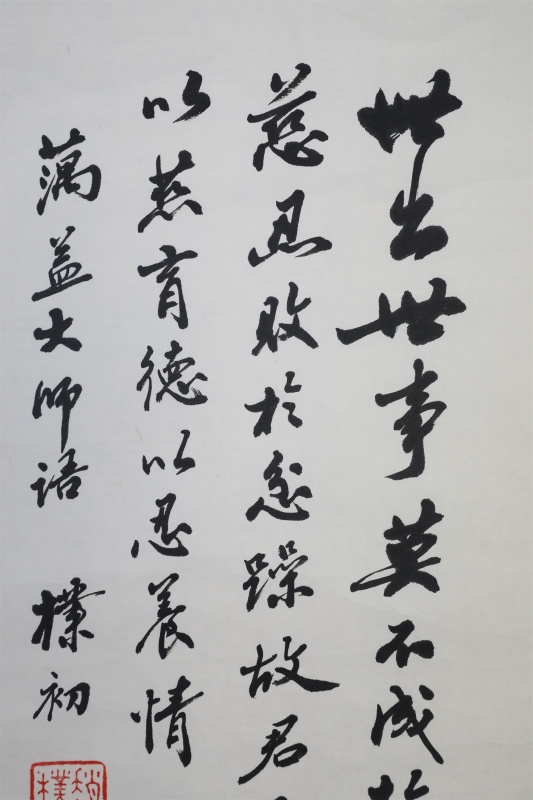 世出世事莫不成於
慈忍敗於忿躁故君
以慈育德以忍養情
蕅益大师语 樸初
趙樸